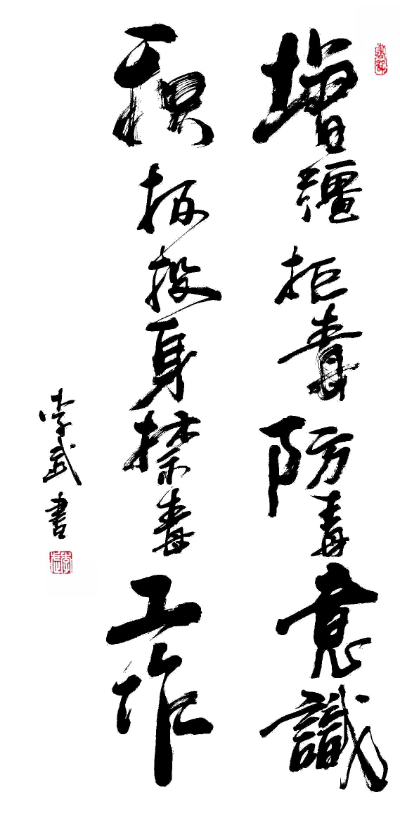 增彊拒毒防毒意識
积极投身禁毒工作
李武書